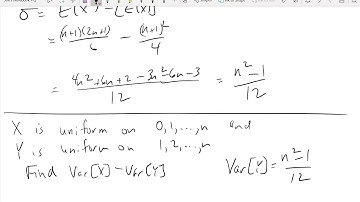 σ² = E[X²] - (E[X])²
= (n+1)(2n+1)/6 - (n+1)²/4
= 4n²+6n+2-3n²-6n-3/12 = n²-1/12
X is uniform on 0,1,...,n and
Y is uniform on 1,2,...,n
Find Var[X]-Var[Y] Var[Y]=n²-1/12